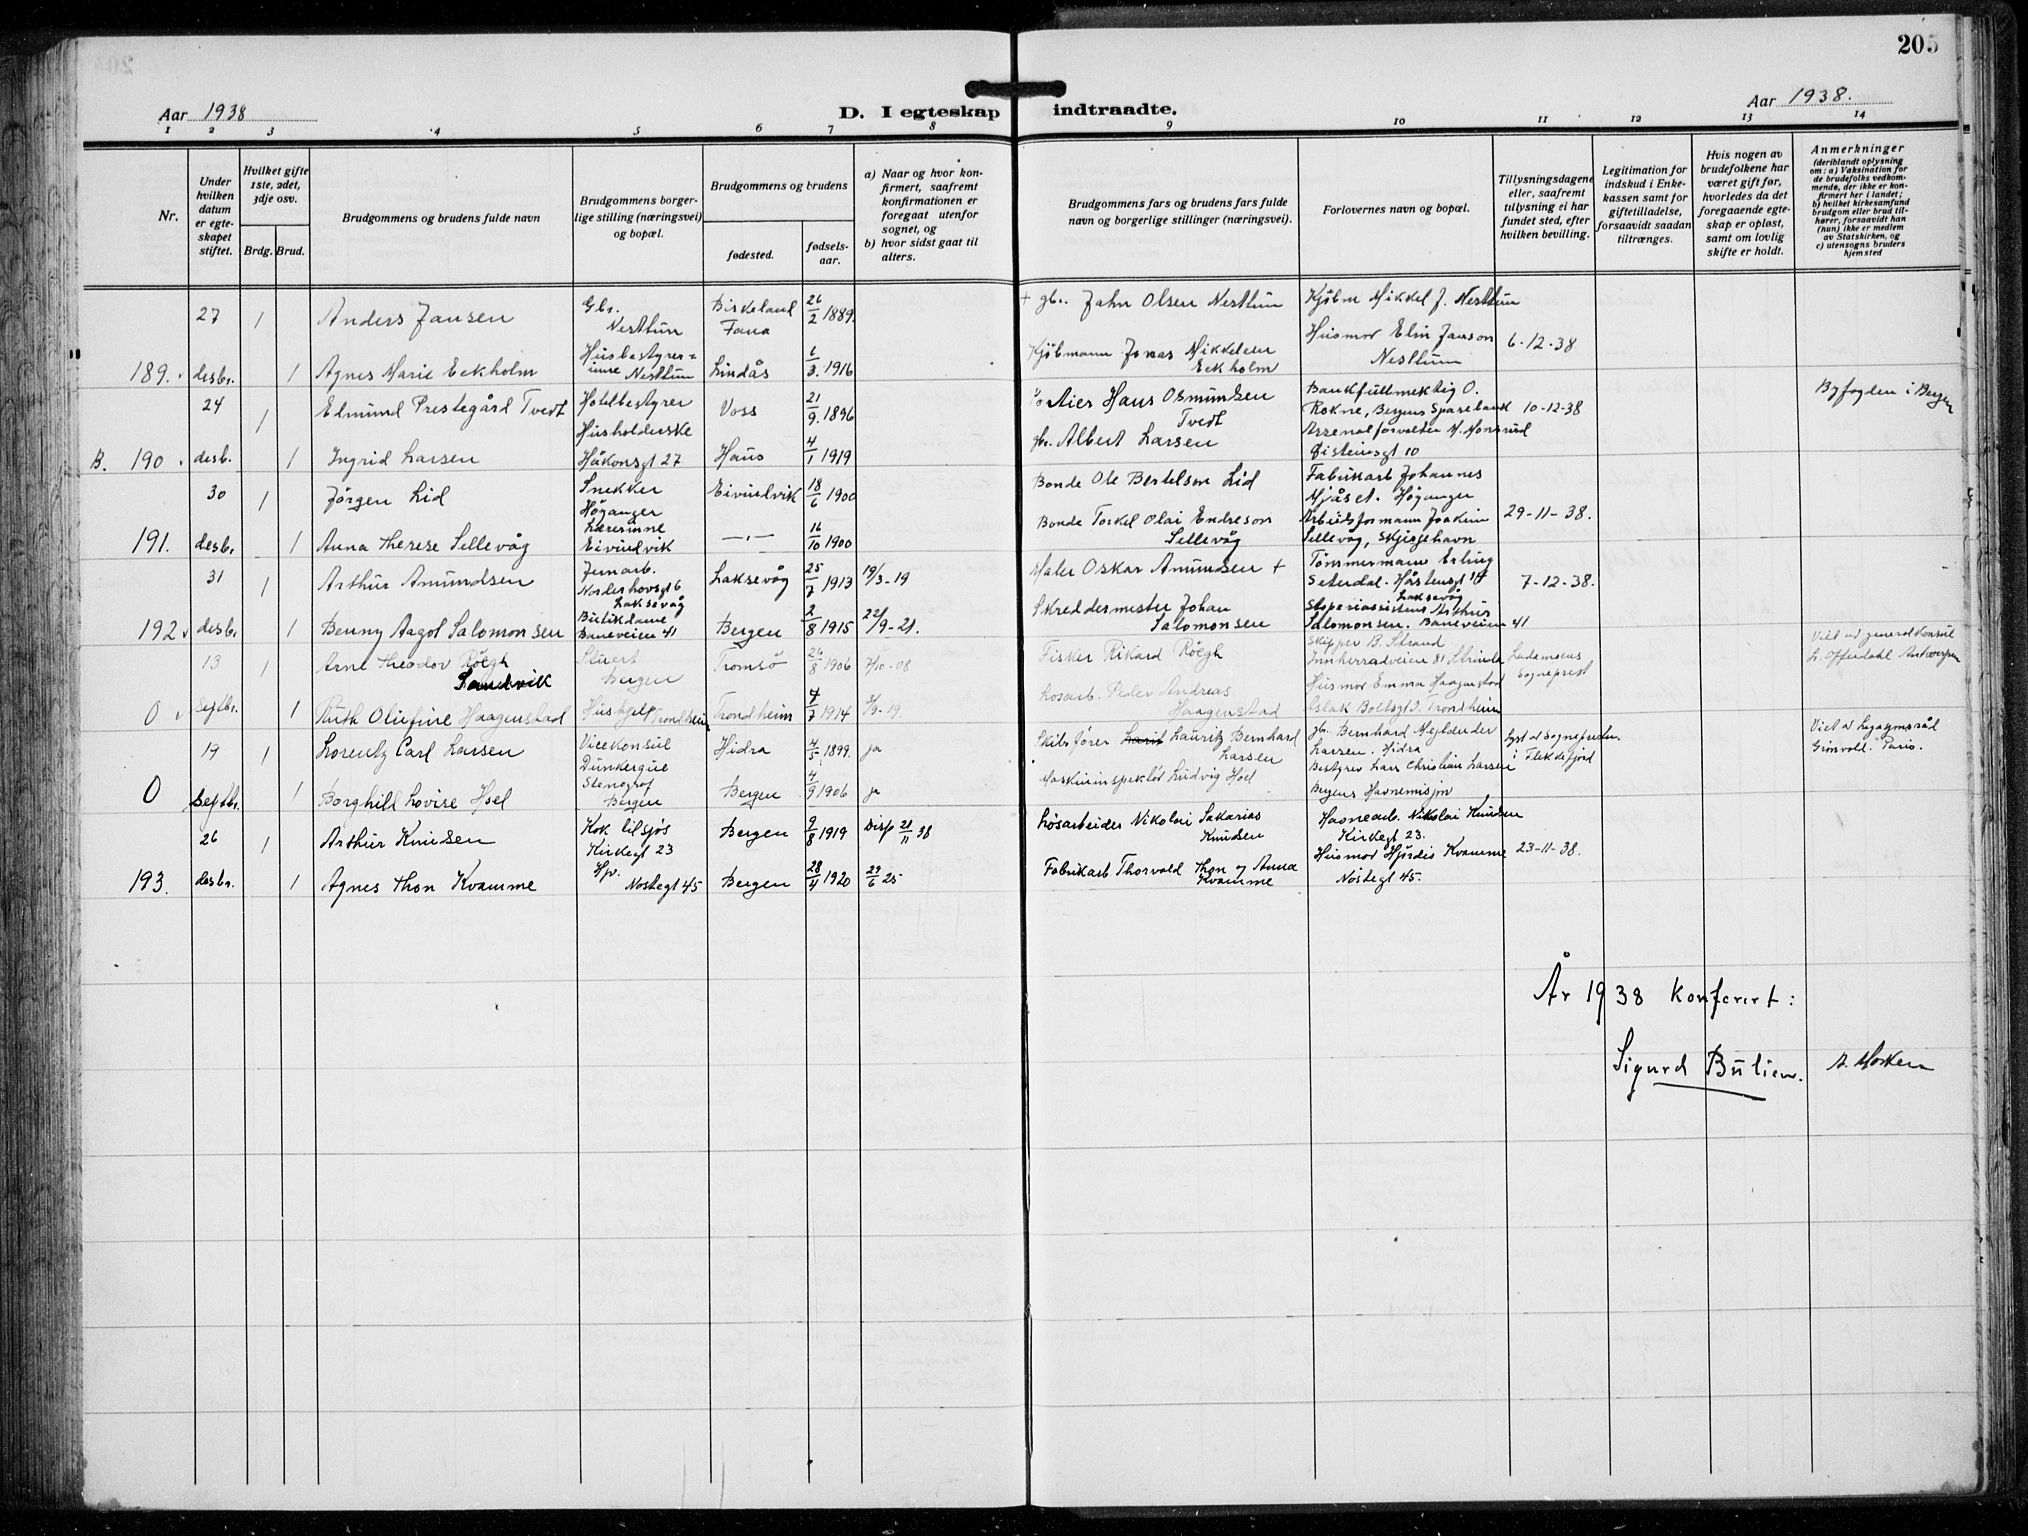 205
Aar 1938
D. I egteskap indtraadte.
Aar 1938.
1 2 3 4 5 6 7 8 9 10 11 12 13 14
Nr.
Under hvilken datum er egteskapet stiftet.
Hvilket gifte 1ste, 2det, 3dje osv.
Brdg. Brud.
Brudgommens og brudens fulde navn
Brudgommens borgerlige stilling (næringsvei) og bopæl.
Brudgommens og brudens
fødested.
fødselsaar.
a) Naar og hvor konfirmert, saafremt konfirmationen er foregaat utenfor sognet, og
b) hvor sidst gaat til alters.
Brudgommens fars og brudens fars fulde navn og borgerlige stillinger (næringsvei).
Forlovernes navn og bopæl.
Tillysningsdagene eller, saafremt tillysning ei har fundet sted, efter hvilken bevilling.
Legitimation for indskud i Enkekassen samt for giftetilladelse, forsaavidt saadan tiltrænges.
Hvis nogen av brudefolkene har været gift før, hvorledes da det foregaaende egteskap er opløst, samt om lovlig skifte er holdt.
Anmerkninger
(deriblandt oplysning om: a) Vaksination for de brudefolks vedkommende, der ikke er konfirmert her i landet; b) hvilket kirkesamfund brudgom eller brud tilhører, forsaavidt han (hun) ikke er medlem av Statskirken, og c) utensogns bruders hjemsted
27 1 Anders Jansen Gbr. Nesttun Birkeland Fana 26/2 1889. + gbr. Jahn Olsen Nesttun Kjøbm Mikkel J. Nesttun
Husmor Elin Janson Nesttun 6-12-38
189. desbr. 1 Agnes Marie Eekholm Husbestyrerinne Nesttun Lindås 6/3. 1916 Kjøbmann Jonas Mikkelsen Eekholm
24 1 Edmund Prestegård Tvedt Hotelbestyrer Voss 21/9. 1896 Hans Osmundsen Tvedt Bankfullmektig O. Rokne, Bergens Sparebank 10-12-38 Byfogden i Bergen
B. 190 desb. 1 Ingrid Larsen Husholderske Håkonsgt 27 Haus 4/1 1919 gbr. Albert Larsen Arsenalforvalter M. Monsrud Øisteinsgt 10
30 1 Jörgen Lid Snekker Høganger Eivindvik 18/6 1900 Bonde Ole Bertelson Lid Fabrikarb Johannes Mjåset. Høganger
29-11-38.
191. desbr. 1 Anna Therese Sellevåg Lærerinne Eivindvik —„— 16/10 1900 Bonde Torkel Olai Endreson Sellevåg Arbeidsformann Joakim Sellevåg, Skjisjehavn
31 1 Arthur Amundsen Jernarb. Norderhovsgt 6 Laksevåg Laksevåg 25/7 1913 19/3-19 Maler Oskar Amundsen + Tømmermann Erling Seterdal. Håsteinsgt 14 Laksevåg 7-12-38.
192 desbr. 1 Benny Aagot Salomonsen Butikdame Baneveien 41 Bergen 2/8 1915 22/9-21. Skreddermester Johan Salomonsen Arthur Salomonsen. Baneveien 41
13 1 Arne Theodor Röegh Sandvik Stuert Bergen Tromsö 26/8 1906 2/10-08 Fisker Rikard Röegh Skipper B. Strand Innherradveien 81 Strinda Lademoens Sogneprest Viet ved generalkonsul L. Offerdahl Antwerpen
0 septbr. 1 Ruth Oliefine Haagenstad Hushjelp Trondheim Trondheim 7/7 1914 7/9-19. Losarb. Peder Andreas Haagenstad Husmor Emma Haagenstad Aslak Boltsgt 5. Trondheim
19 1 Lorentz Carl Larsen Vicekonsul Dunkerque Hidra 4/5 1899. ja Skibsfører Lauritz Bernhard Larsen gbr. Bernhard Mejlender Larsen. Hidra Lyst ved Sognepresten i Flekkefjord Viet v Legasjonsråd Grönvold. Paris.
0 septbr. 1 Borghild Lovise Hoel Stenograf Bergen Bergen 4/9 1906 ja Maskininspektör Ludvig Hoel Bestyrer Lars Christian Larsen Bergens Havnemisjon
26 1 Arthur Knudsen Kok tilsjøs Kirkegt 23 Bergen 9/8 1919 Disp 21/11 38 Løsarbeider Nikolai Sakarias Knudsen Havnearb. Nikolai Knudsen Kirkegt 23.
23-11-38.
193. desbr. 1 Agnes Thon Kvamme Hjv. Nöstegt 45 Bergen 28/4 1920 29/6 25 Fabrikarb Thorvald Thon og Anna Kvamme Husmor Hjördis Kvamme Nöstegt 45.
År 1938 konferert:
Sigurd Bülien.
A. Mosken